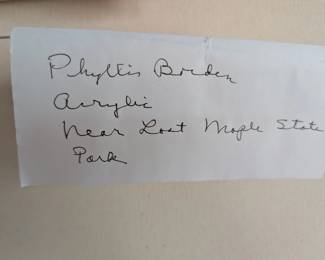 Phyllis Borden
Acrylic
Near Lost Maple State
Park